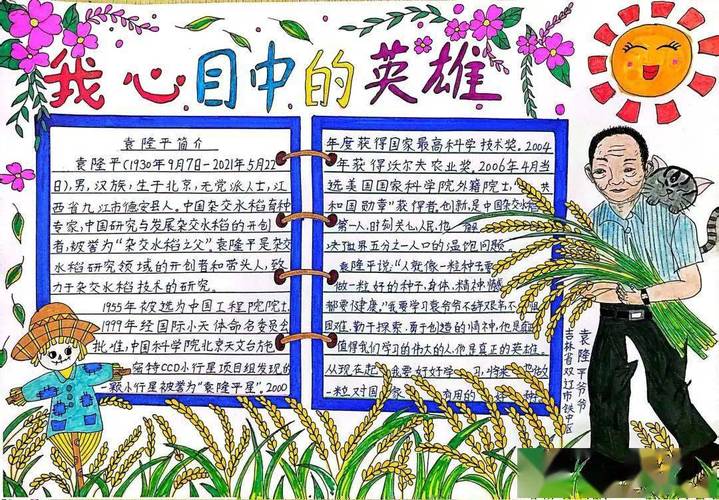 我心目中的英雄
袁隆平简介
袁隆平(1930年9月7日-2021年5月22
日),男,汉族,生于北京,无党派人士,江
西省九江市德安县人。中国杂交水稻育种
专家,中国研究与发展杂交水稻的开创
者,被誉为“杂交水稻之父”袁隆平是杂交
水稻研究领域的开创者和带头人,致
力于杂交水稻技术的研究。
1955年被选为中国工程院院士
1999年经国际小天体命名委员会
批准,中国科学院北京天文台
CCD小行星项目组发现的
一颗小行星被誉为“袁隆平星”,2000
年度获得国家最高科学技术奖,2004
年获得沃尔夫农业奖,2006年4月当
选美国国家科学院外籍院士,共
和国勋章”获得者,创新是中国杂交水稻
第一人,时刻关心人民,他解
决世界五分之一人口的温饱问题
袁隆平说:“人就像一粒种子
做一粒好的种子,身体,精神
都要健康。”我要学习袁爷爷不辞艰
困难,勤于探索,勇于创造的精神,他是
值得我们学习的伟大的人,他是真正的英雄。
从现在起 我要好好学习,将来 做
一粒对国家 有用的 好
袁隆平爷爷
吉林省双辽市铁中区